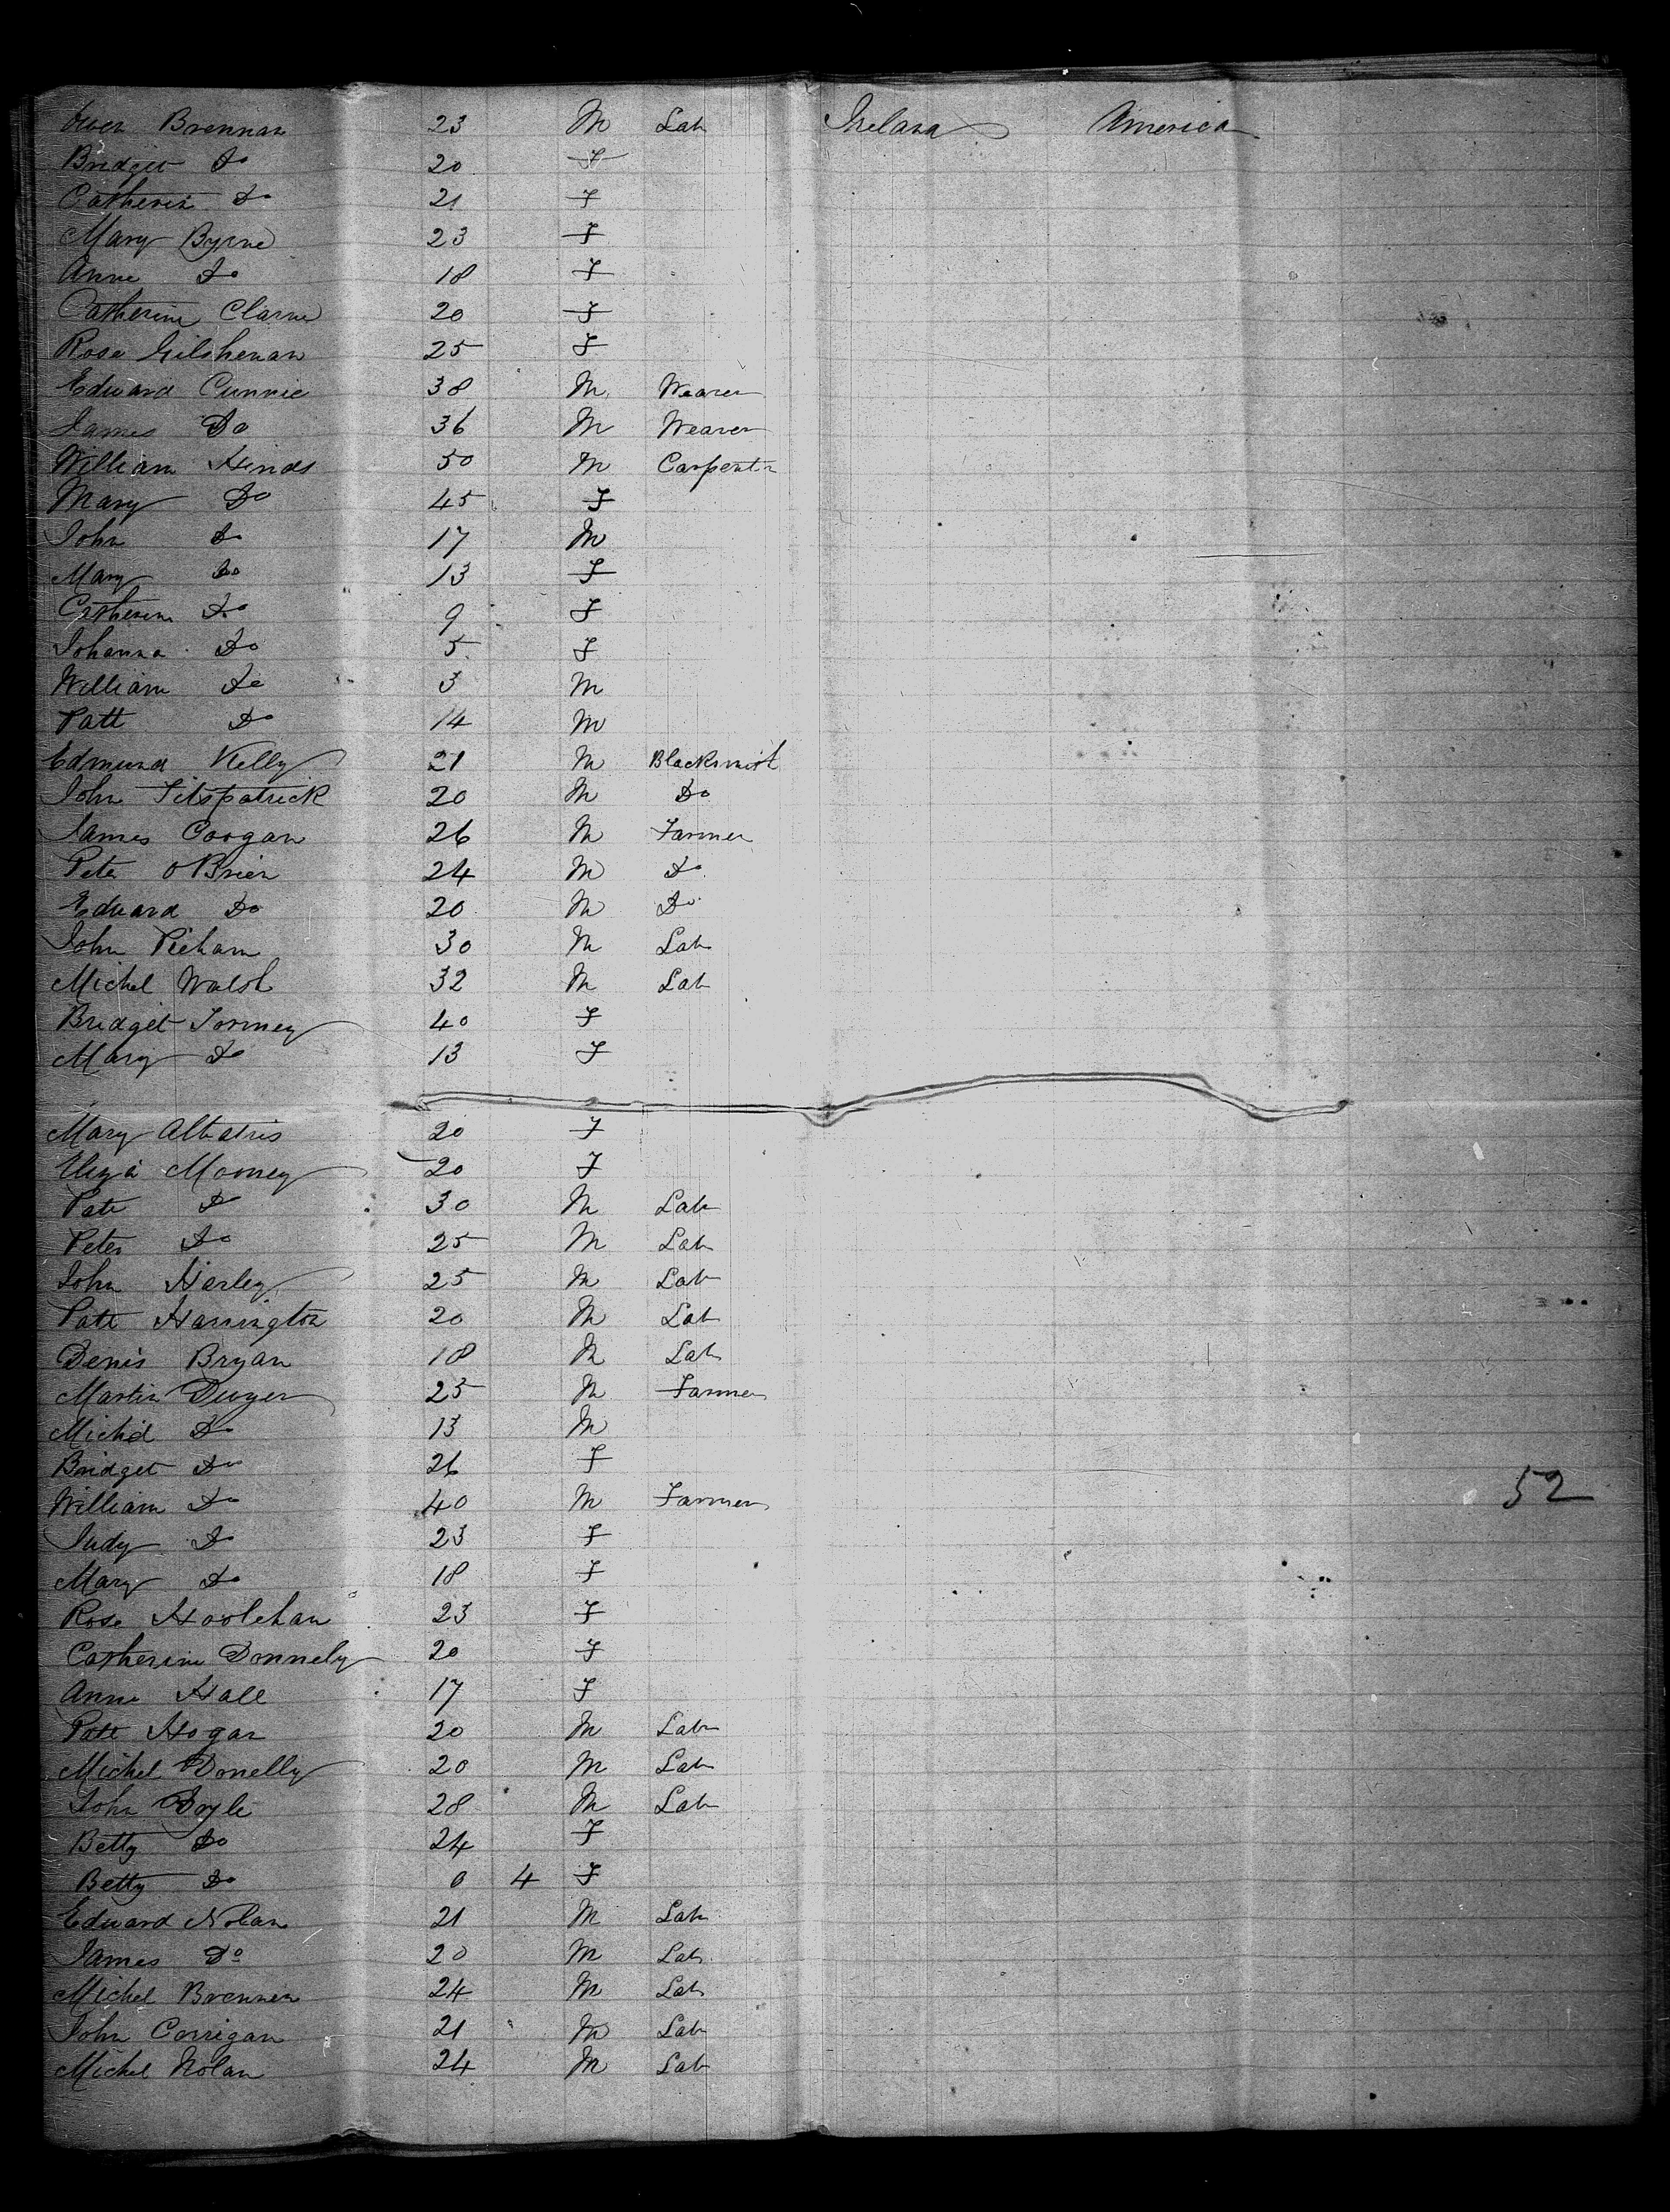 Owen Brennan 23 M Lab Ireland America
Bridget Do 20 F
Catherin Do 21 F
Mary Byrne 23 F
Anne Do 18 F
Catherine 20 F
Rose Gilshenan 25 F
Edward Cunnie 38 M Weaver
James Do 36 M Weaver
William Hinds 50 M Carpentr
Mary Do 45 F
John Do 17 M
Mary Do 13 F
Catherin Do 9 F
Johanna Do 5 F
William Do 3 M
Patt Do 14 M
Edmund Kelly 21 M Blacksmit
John Fitspatrick 20 M Do
James Coogan 26 M Farmer
Peter OBrien 24 M Do
Edward Do 20 M Do
John 30 M Lab
Michel Walsh 32 M Lab
Bridget Tormey 40 F
Mary Do 13 F
Mary 20 F
Eliza Mooney 20 F
Patt Do 30 M Lab
Peter Do 25 M Lab
John Harley 25 M Lab
Patt Harrington 20 M Lab
Denis Bryan 18 M Lab
Martin Dwyer 25 M Farmer
Michel Do 13 M
Bridget Do 26 F
William Do 40 M Farmer 52
Judy Do 23 F
Mary Do 18 F
Rose Hoolehan 23 F
Catherine Donnely 20 F
Anne Hall 17 F
Patt Hogan 20 M Lab
Michel Donelly 20 M Lab
John Doyle 28 M Lab
Betty Do 24 F
Betty Do 0 4 F
Edward Nolan 21 M Lab
James Do 20 M Lab
Michel Brennen 24 M Lab
John Corrigan 21 M Lab
Michel Nolan 24 M Lab